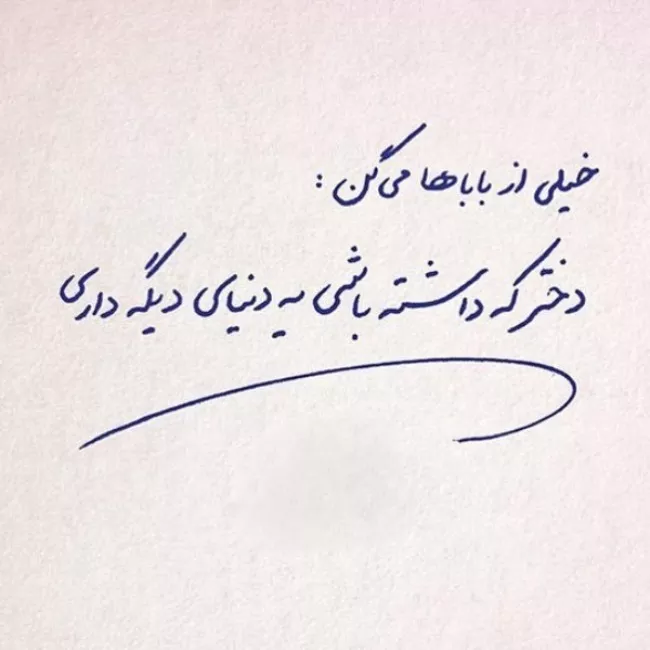 خیلی از باباها می‌گن :
دختر که داشته باشی یه دنیای دیگه داری